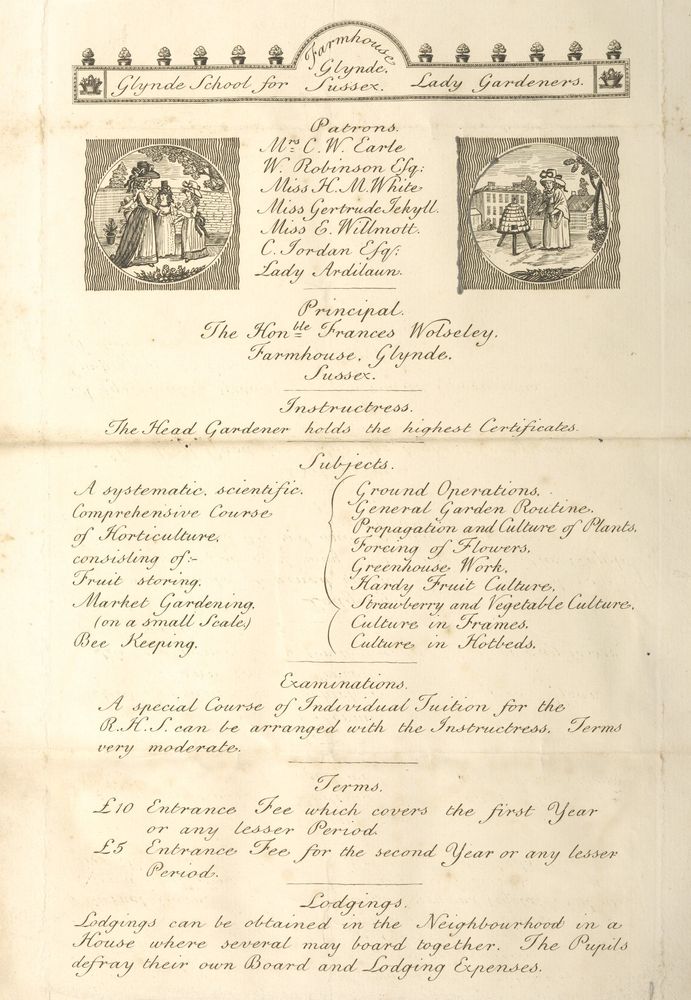 Farmhouse
Glynde School for Glynde, Lady Gardeners.
Sussex.
Patrons.
Mrs C. W. Earle
W. Robinson Esq:
Miss H. M. White
Miss Gertrude Jekyll.
Miss E. Willmott.
C. Jordan Esq:
Lady Ardilaun.
Principal.
The Honble Frances Wolseley,
Farmhouse, Glynde,
Sussex.
Instructress.
The Head Gardener holds the highest Certificates.
Subjects.
A systematic, scientific,
Comprehensive Course
of Horticulture,
consisting of:-
Fruit storing,
Market Gardening,
(on a small Scale)
Bee Keeping.
Ground Operations,
General Garden Routine,
Propagation and Culture of Plants,
Forcing of Flowers,
Greenhouse Work,
Hardy Fruit Culture,
Strawberry and Vegetable Culture,
Culture in Frames,
Culture in Hotbeds.
Examinations.
A special Course of Individual Tuition for the
R.H.S. can be arranged with the Instructress. Terms
very moderate.
Terms.
£10 Entrance Fee which covers the first Year
or any lesser Period.
£5 Entrance Fee for the second Year or any lesser
Period.
Lodgings.
Lodgings can be obtained in the Neighbourhood in a
House where several may board together. The Pupils
defray their own Board and Lodging Expenses.